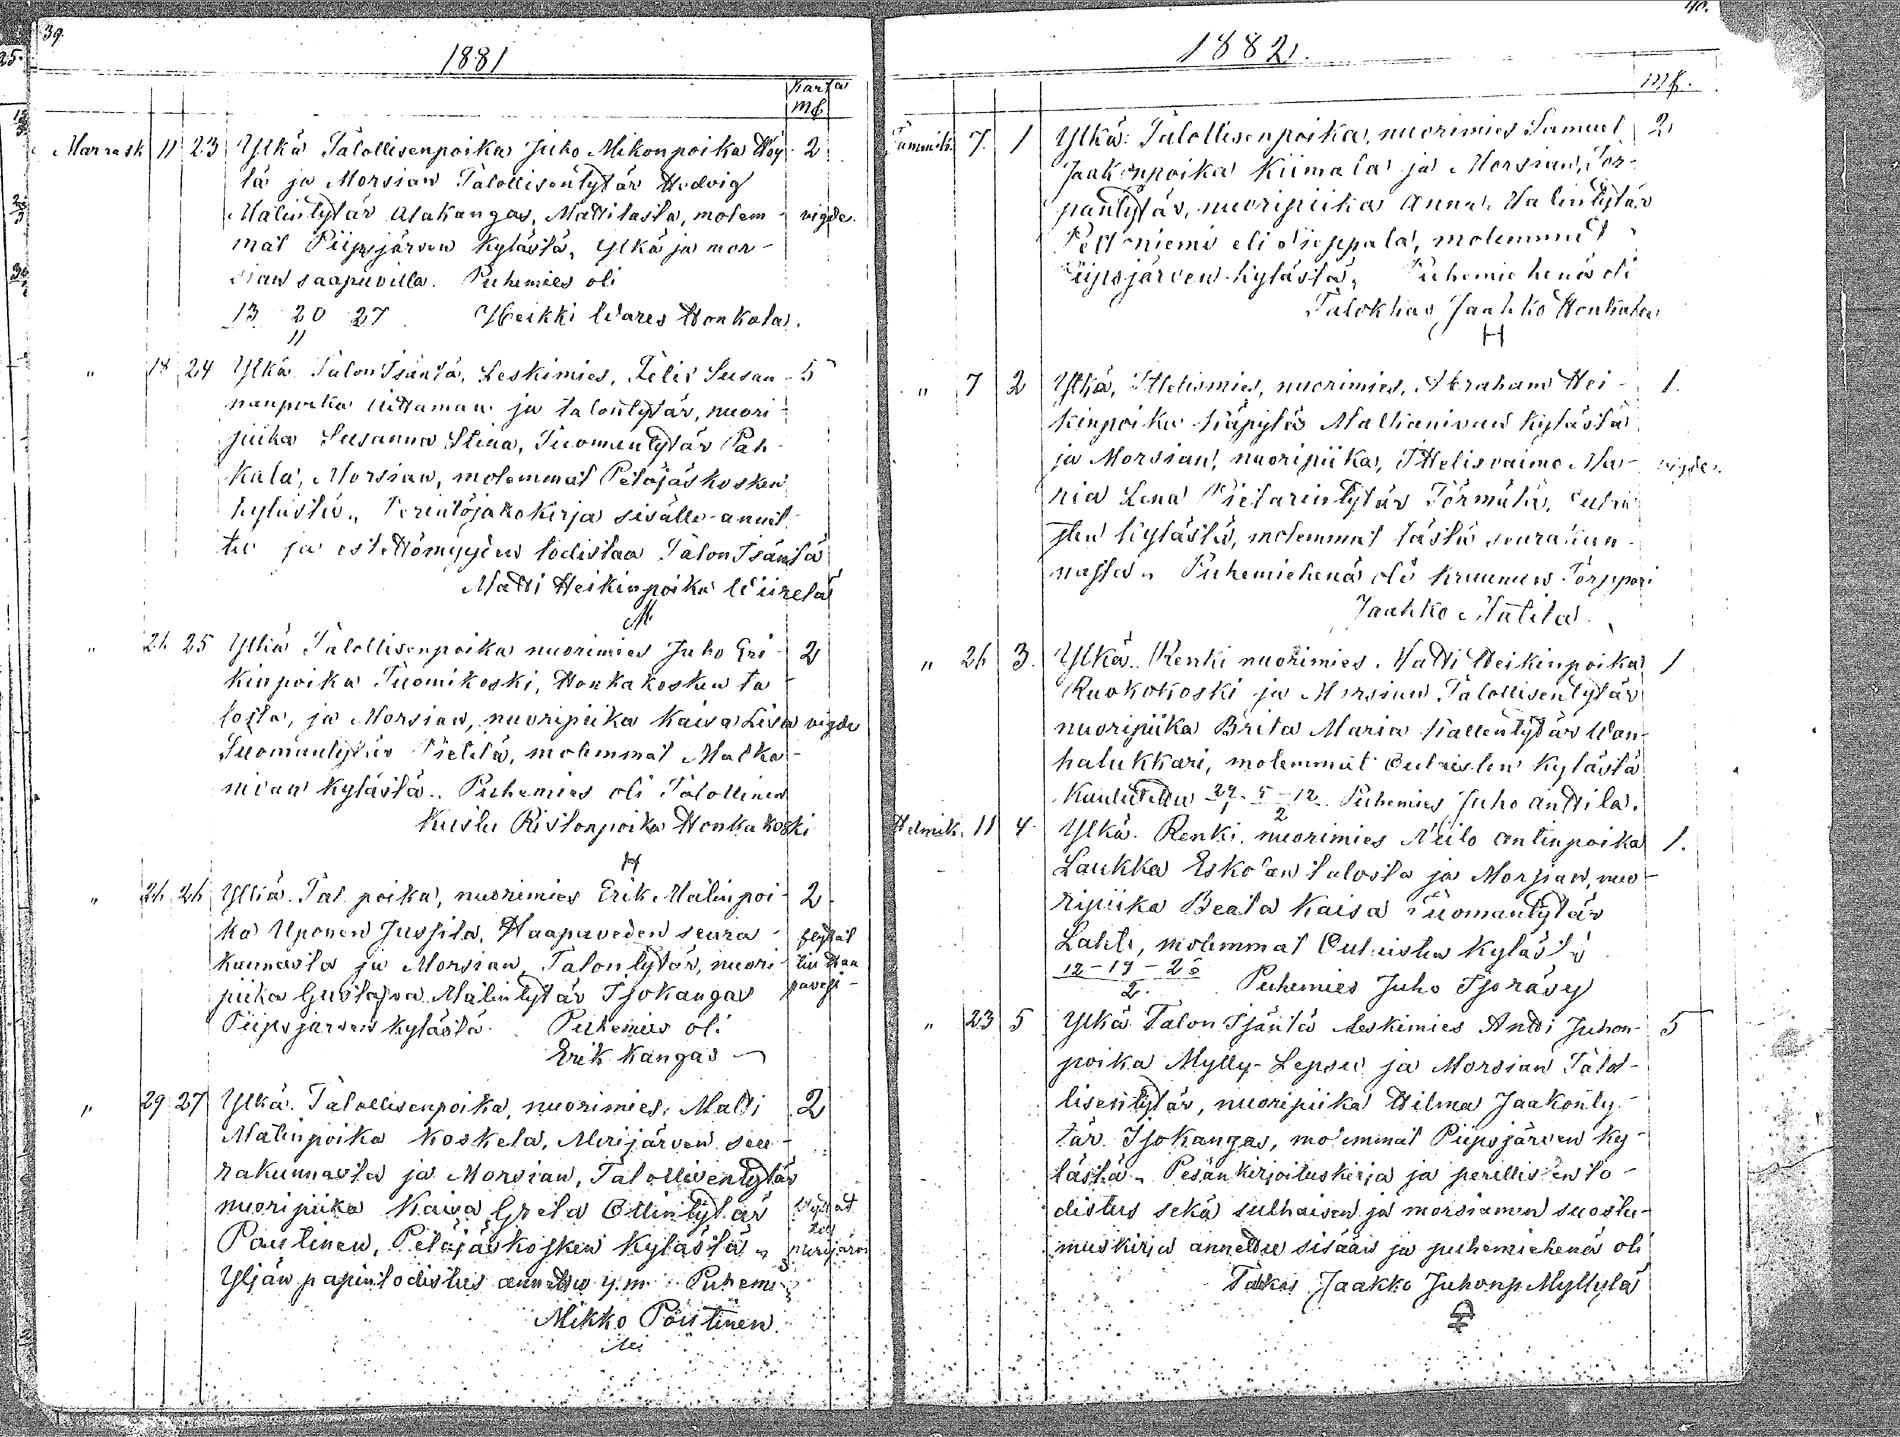 39.
1881
Karta
mk
Marrask 11 23 Ylkä Talollisenpoika Juho Mikonpoika Höy- 2
lä ja Morsian Talollisentytär Hedvig
Matintytär Alakangas, Mattilasta, molem- vigde.
mat Piipsjärven kylästä, Ylkä ja mor-
sian saapuvilla. Puhemies oli
13 20 27 Heikki Wares Honkala.
11
" 18 24 Ylkä Talon Isäntä, Leskimies, Felix Susan- 5
nanpoika Uittaman ja talontytär, nuori-
piika Susanna Stina, Tuomantytär Pah-
kala, Morsian, molemmat Petäjäskosken
kylästä,, Perintöjakokirja sisälle annet-
tu ja estettömyyden todistaa Talon Isäntä
Matti Heikinpoika Wiirelä
M
" 26 25 Ylkä Talollisenpoika nuorimies Juho Eri- 2
kinpoika Tuomikoski, Honkakosken ta-
losta, ja Morsian, nuoripiika Kaisa Lisa vigde
Tuomantytär Pietilä, molemmat Matka-
nivan kylästä.. Puhemies oli Talollinen
Kustu Ristonpoika Honkakoski
H
" 26 26 Ylkä. Tal. poika, nuorimies Erik Matinpoi- 2
ka Uponen Jussila, Haapaveden seura-
kunnasta ja Morsian, Talontytär, nuori-
piika Gustava Matintytär Isokangas
Piipsjärven kylästä. Puhemies oli
Erik Kangas
" 29 27 Ylkä. Talollisenpoika, nuorimies, Matti 2
Matinpoika Koskela, Merijärven seu-
rakunnasta ja Morsian, Talollisentytär
nuoripiika Kaisa Greta Ollintytär
Pöustinen, Petäjäskosken kylästä,,
Yljän papintodistus annettu y.m. Puhemies
Mikko Pöustinen.
40.
1882.
mk.
Tammik. 7. 1 Ylkä: Talollisenpoika, nuorimies Samuel 2
Jaakonpoika Kiimala ja Morsian, Tor-
pantytär, nuoripiika Anna Matintytär
Peltoniemi eli Seppälä, molemmat
Piipsjärven kylästä,, Puhemiehenä oli
Talokkas Jaakko Honkala
H
" 7 2 Ylkä, Itselismies, nuorimies, Abraham Hei- 1.
kinpoika Käpylä Matkanivan kylästä
ja Morsian, nuoripiika, Itselisvaimo Ma- vigde.
ria Lena Pietarintytär Törmälä, Oulais-
ten kylästä, molemmat tästä seurakun-
nasta,, Puhemiehenä oli kruunun Torppari
Jaakko Matila.
" 26 3. Ylkä.. Renki nuorimies Matti Heikinpoika 1
Ruokokoski ja Morsian Talollisentytär
nuoripiika Brita Maria Kallentytär Wan-
halukkari, molemmat Oulaisten kylästä
Kuulutettu 29. 5 - 12. Puhemies Juho Anttila.
1 2
Helmik. 11 4. Ylkä. Renki, nuorimies Niilo Antinpoika 1.
Laukka Eskolan talosta ja Morsian, nuo-
ripiika Beata Kaisa Tuomantytär
Lahti, molemmat Oulaisten kylästä
12 - 19 - 26 Puhemies Juho Isoräsy
2.
" 23 5 Ylkä Talon Isäntä Leskimies Antti Juhon- 5
poika Mylly-Lepsu ja Morsian Talol-
lisentytär, nuoripiika Hilma Jaakonty-
tär Isokangas, molemmat Piipsjärven ky-
lästä,, Pesänkirjoituskirja ja perillisen to-
distus sekä sulhaisen ja morsiamen suostu-
muskirja annettu sisään ja puhemiehenä oli
Talokas Jaakko Juhonp Myllylä